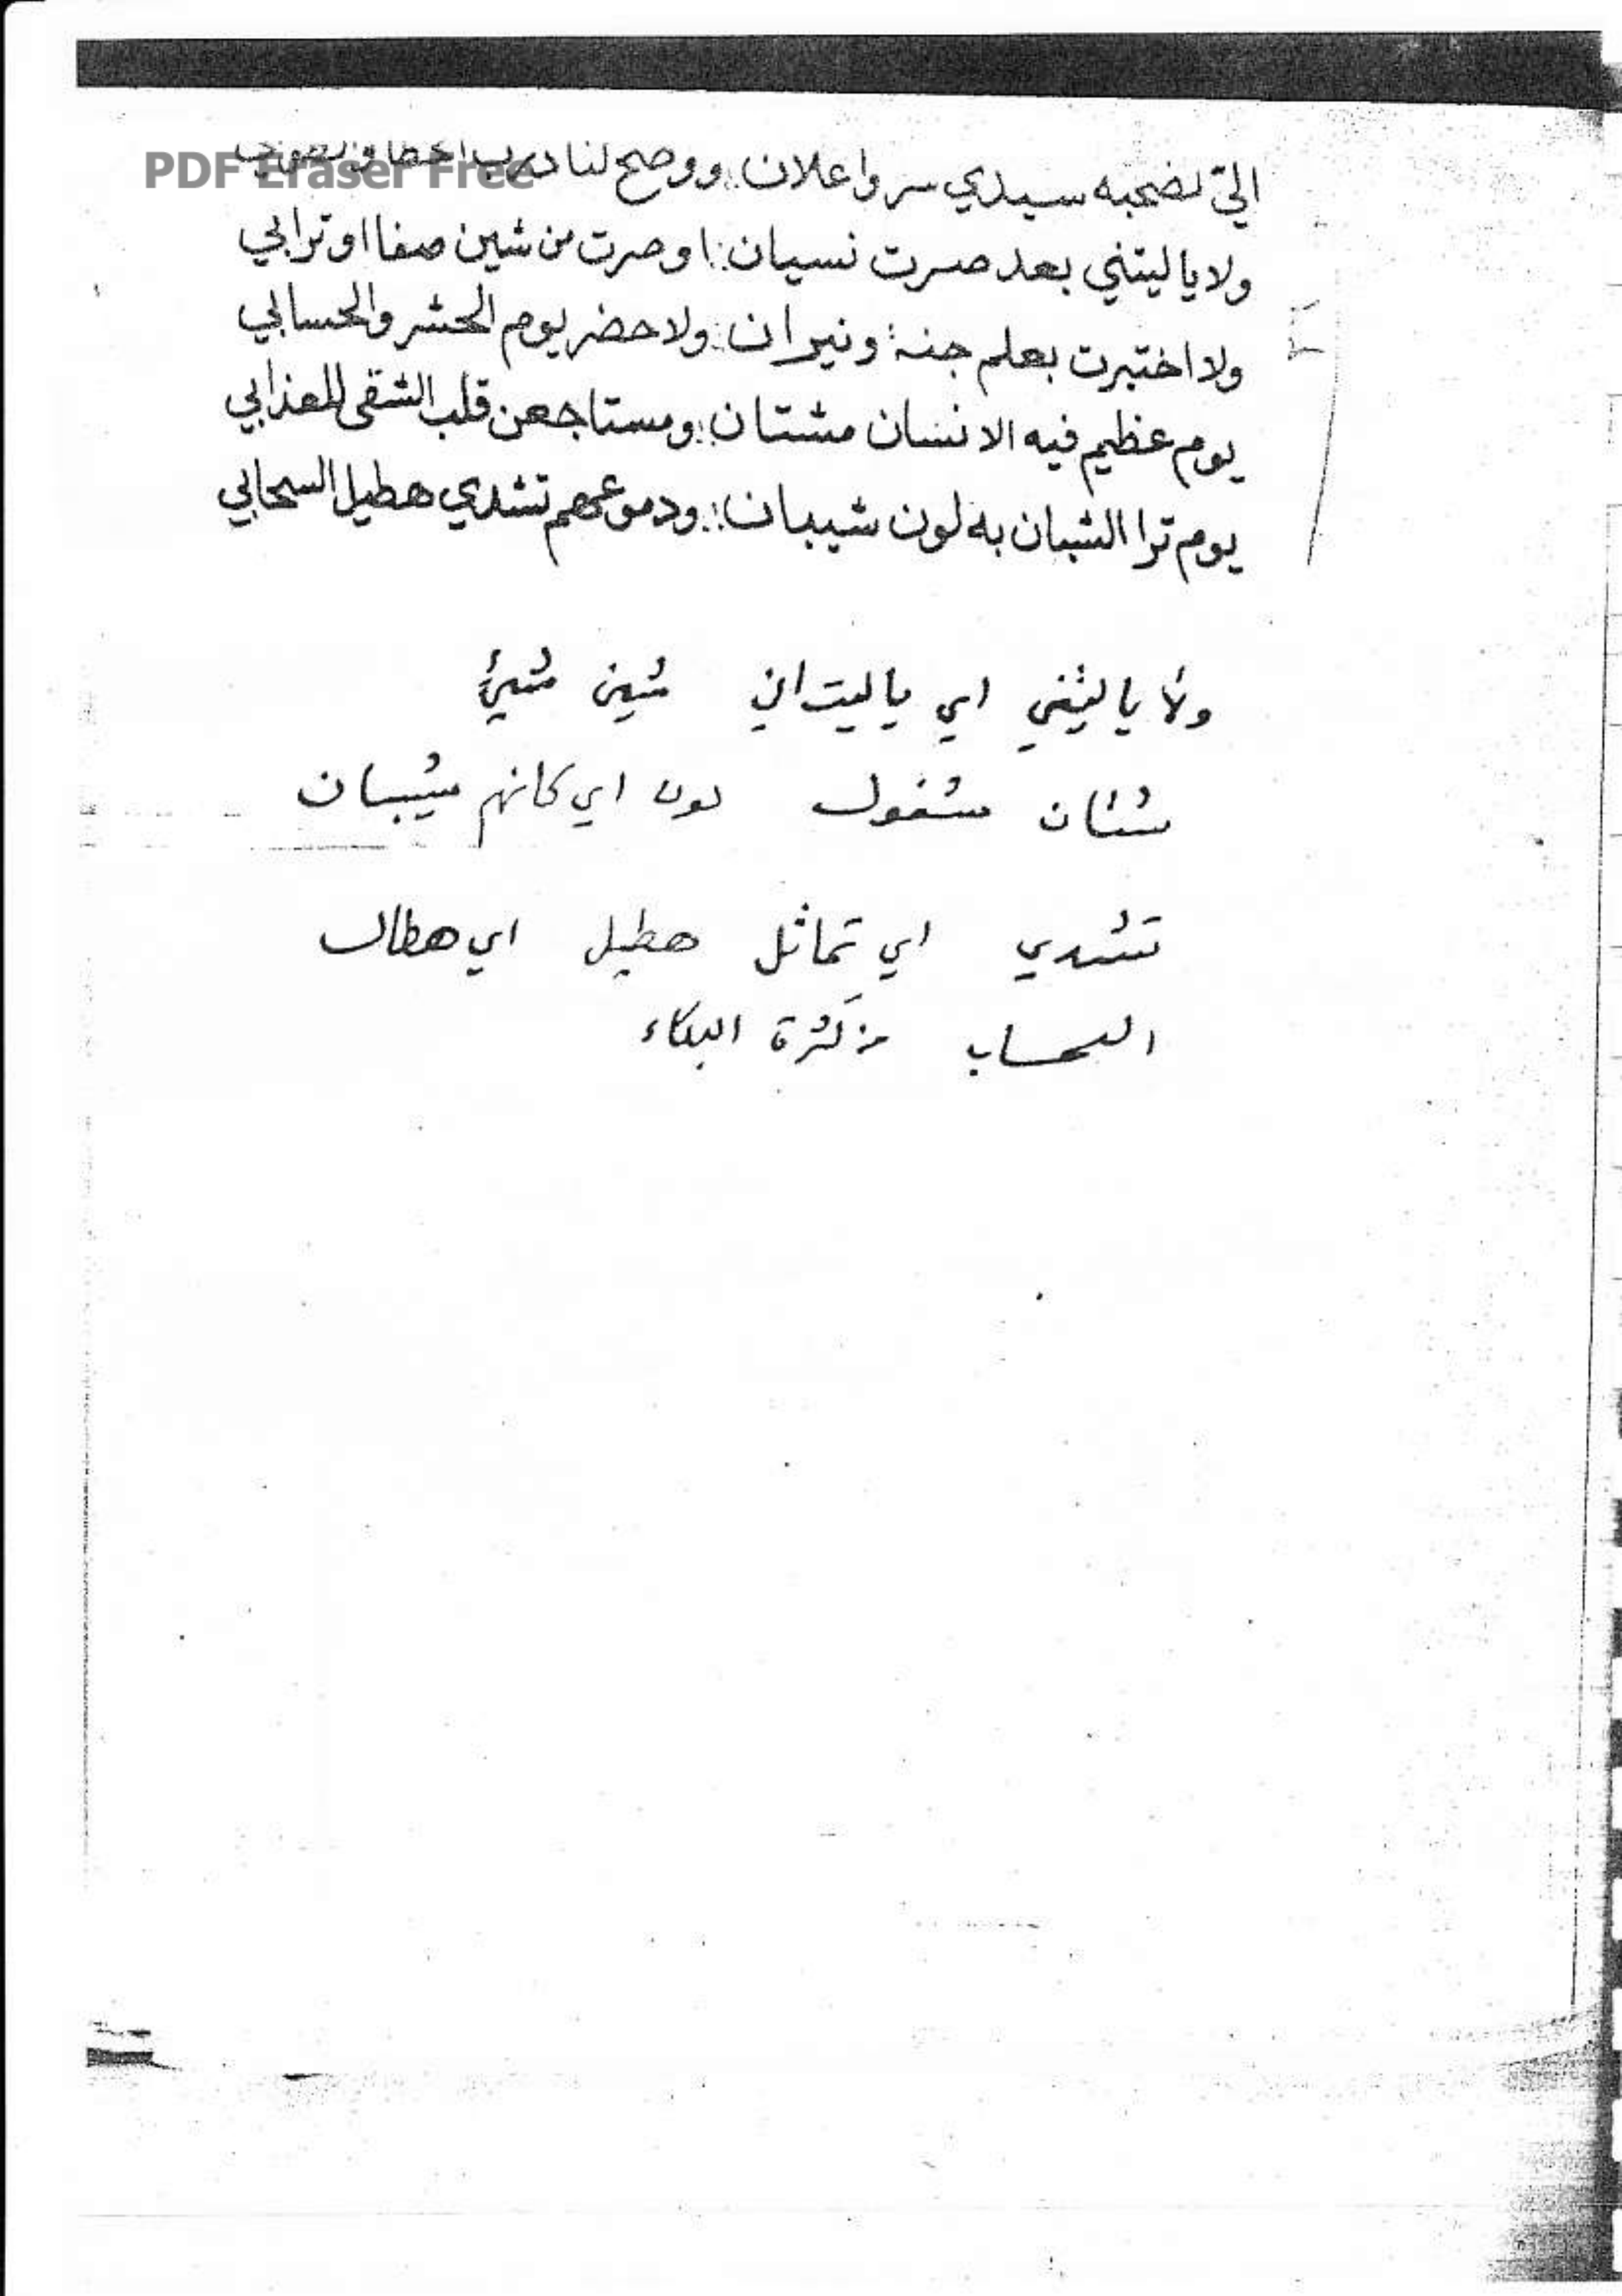 الي نضحبه سيدي سر واعلان : ووضح لنا درب الخطا والصوابي
PDF Eraser Free
ولا ياليتني بعد صرت نسيان : او صرت من شين صفا او ترابي
ولا اختبرت بعلم جنة ونيران : ولا حضر يوم الحشر والحسابي
يوم عظيم فيه الانسان مشتان : ومستاجعن قلب الشقى للعذابي
يوم ترا الشبان به لون شيبان : ودموعهم تشدي هطيل السحابي
ولا ياليتني اي ياليت اني شين شيئ
مشتان مشغول لون اي كانهم شيبان
تشدي اي تماثل هطيل اي هطال
السحاب من كثرة البكاء